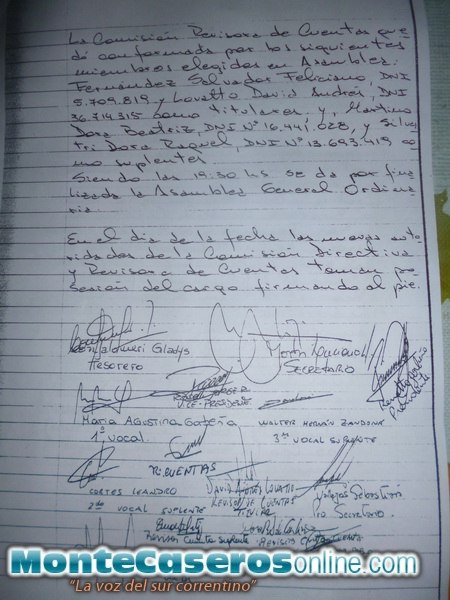 La Comisión Revisora de Cuentas que
dó conformada por los siguientes
miembros elegidos en Asamblea:
Fernández Salvador Feliciano, DNI
5.709.819 y Lovatto David Andrés, DNI
36.714.315 como titulares y, Martino
Dora Beatriz, DNI Nº 16.441.028, y Silves
tri Dora Raquel, DNI Nº 13.693.419 co
mo suplentes.
Siendo las 19:30 hs se da por fina
lizada la Asamblea General Ordina
ria.
En el día de la fecha las nuevas auto
ridades de la Comisión Directiva
y Revisora de Cuentas toman po
sesión del cargo firmando al pie.
Gladys
TESORERO
SECRETARIO
VICE-PRESIDENTE
Presidente
MARIA AGUSTINA
1º VOCAL
WALTER HERNÁN ZANDONA
3er VOCAL SUPLENTE
R. CUENTAS
CORTES LEANDRO
2do VOCAL SUPLENTE
DAVID ANDRES LOVATTO
REVISOR DE CUENTAS
TITULAR
Sebastián
Pro Secretario
Revisor Cuenta Suplente
MONTECASEROSonline.com
"La voz del sur correntino"